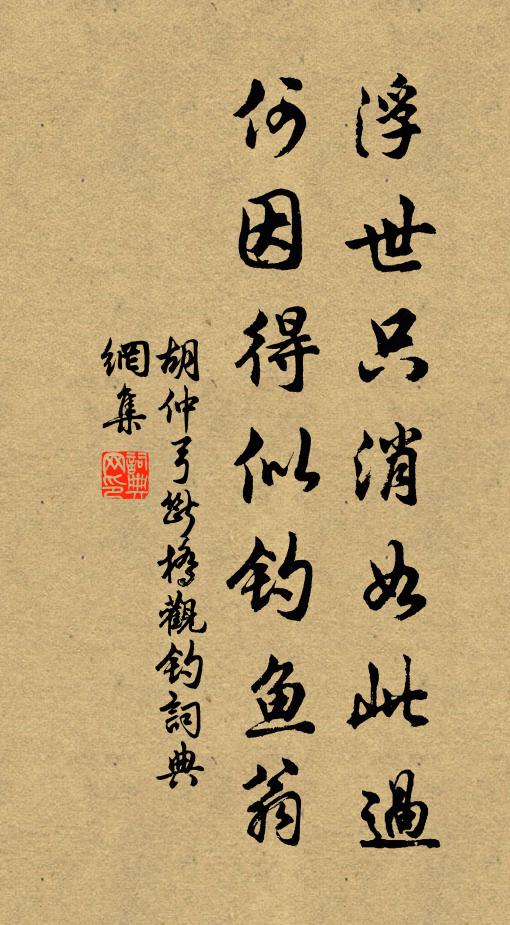 浮世只消如此過
何因得似钓鱼翁
胡仲弓斷橋觀钓詞典
網集
詞典网印